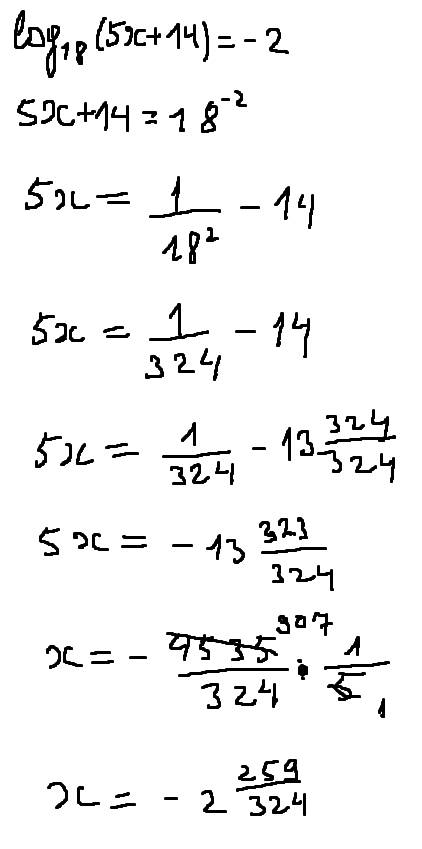 log₁₈(5x+14)=-2
5x+14=18⁻²
5x = 1/18² - 14
5x = 1/324 - 14
5x = 1/324 - 13 324/324
5x = - 13 323/324
x = - 4535/324 907 · 1/5 1
x = - 2 259/324